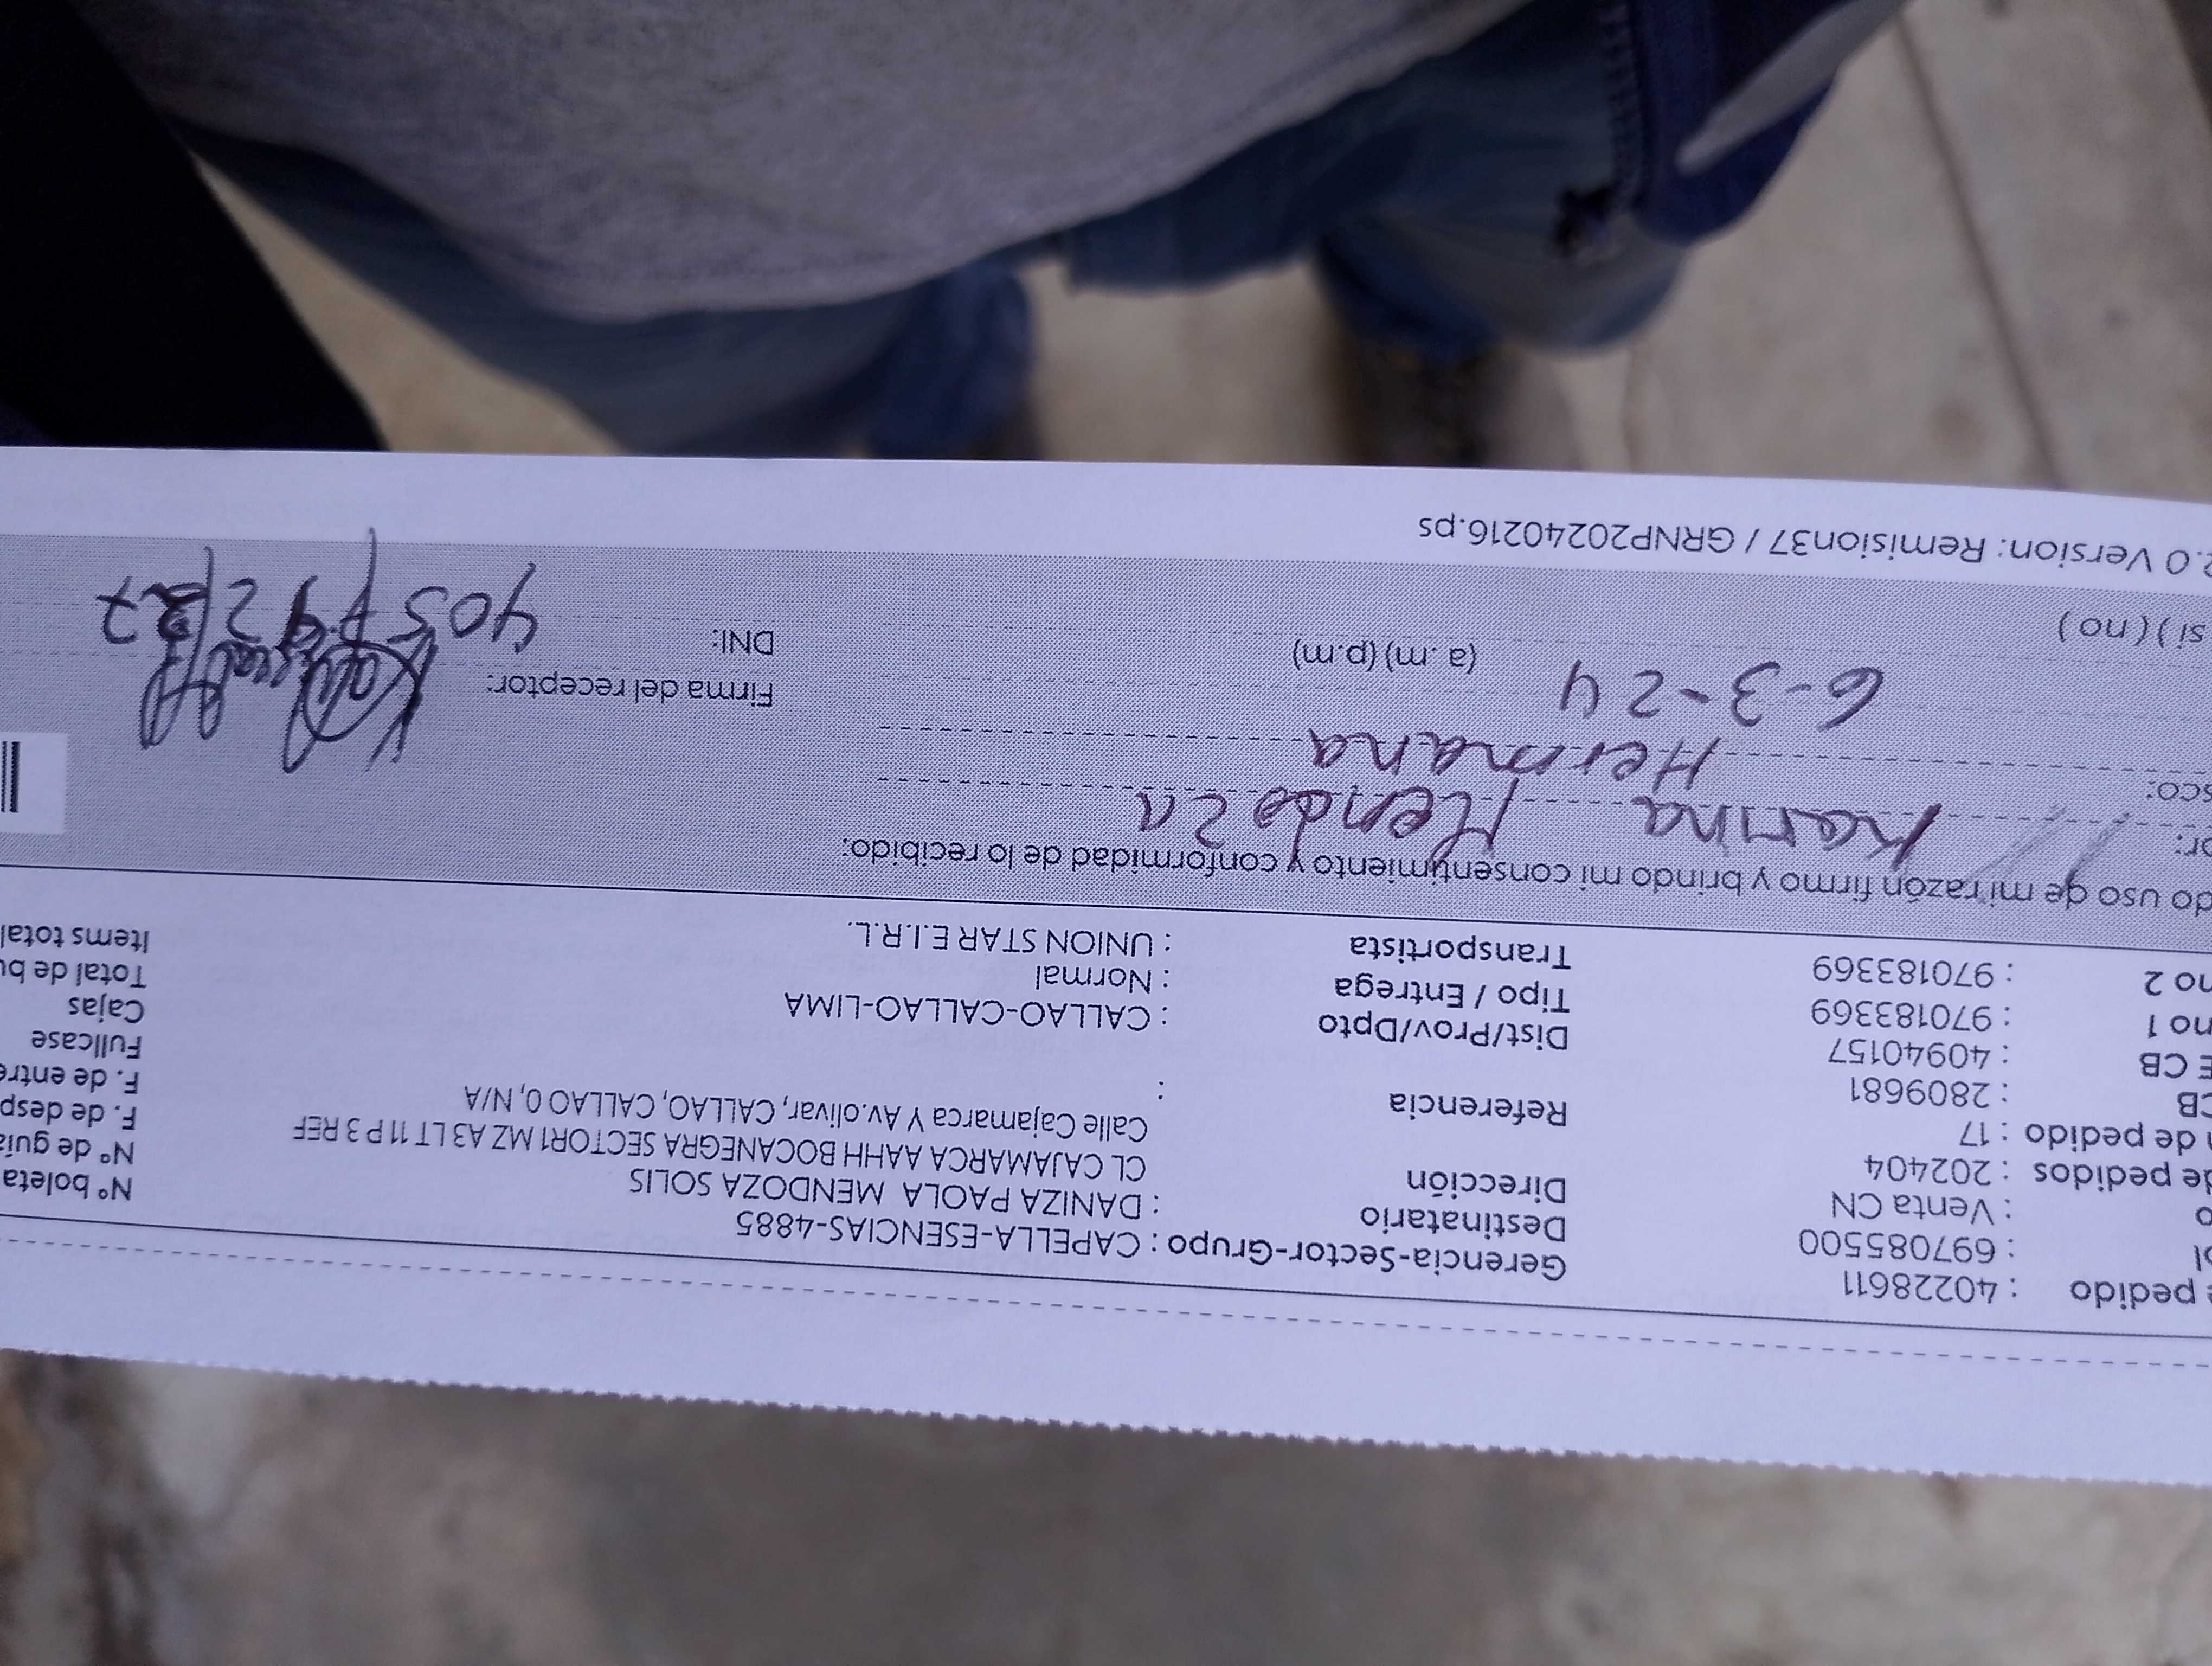 e pedido : 40228611 Gerencia-Sector-Grupo : CAPELLA-ESENCIAS-4885
ol : 697085500 Destinatario : DANIZA PAOLA MENDOZA SOLIS Nº boleta
o : Venta CN Dirección CL CAJAMARCA AAHH BOCANEGRA SECTOR1 MZ A3 LT 11 P 3 REF Nº de guía
de pedidos : 202404 Calle Cajamarca Y Av.olivar, CALLAO, CALLAO 0, N/A F. de desp
de pedido : 17 Referencia : F. de entre
CB : 2809681 Fullcase
E CB : 40940157 Dist/Prov/Dpto : CALLAO-CALLAO-LIMA Cajas
no 1 : 970183369 Tipo / Entrega : Normal Total de bu
no 2 : 970183369 Transportista : UNION STAR E.I.R.L. Items total
do uso de mi razón firmo y brindo mi consentimiento y conformidad de lo recibido:
or: Karina Mendoza
sco: Hermana
6-3-24 (a.m) (p.m) Firma del receptor:
si ) ( no ) DNI:
2.0 Version: Remision37 / GRNP20240216.ps